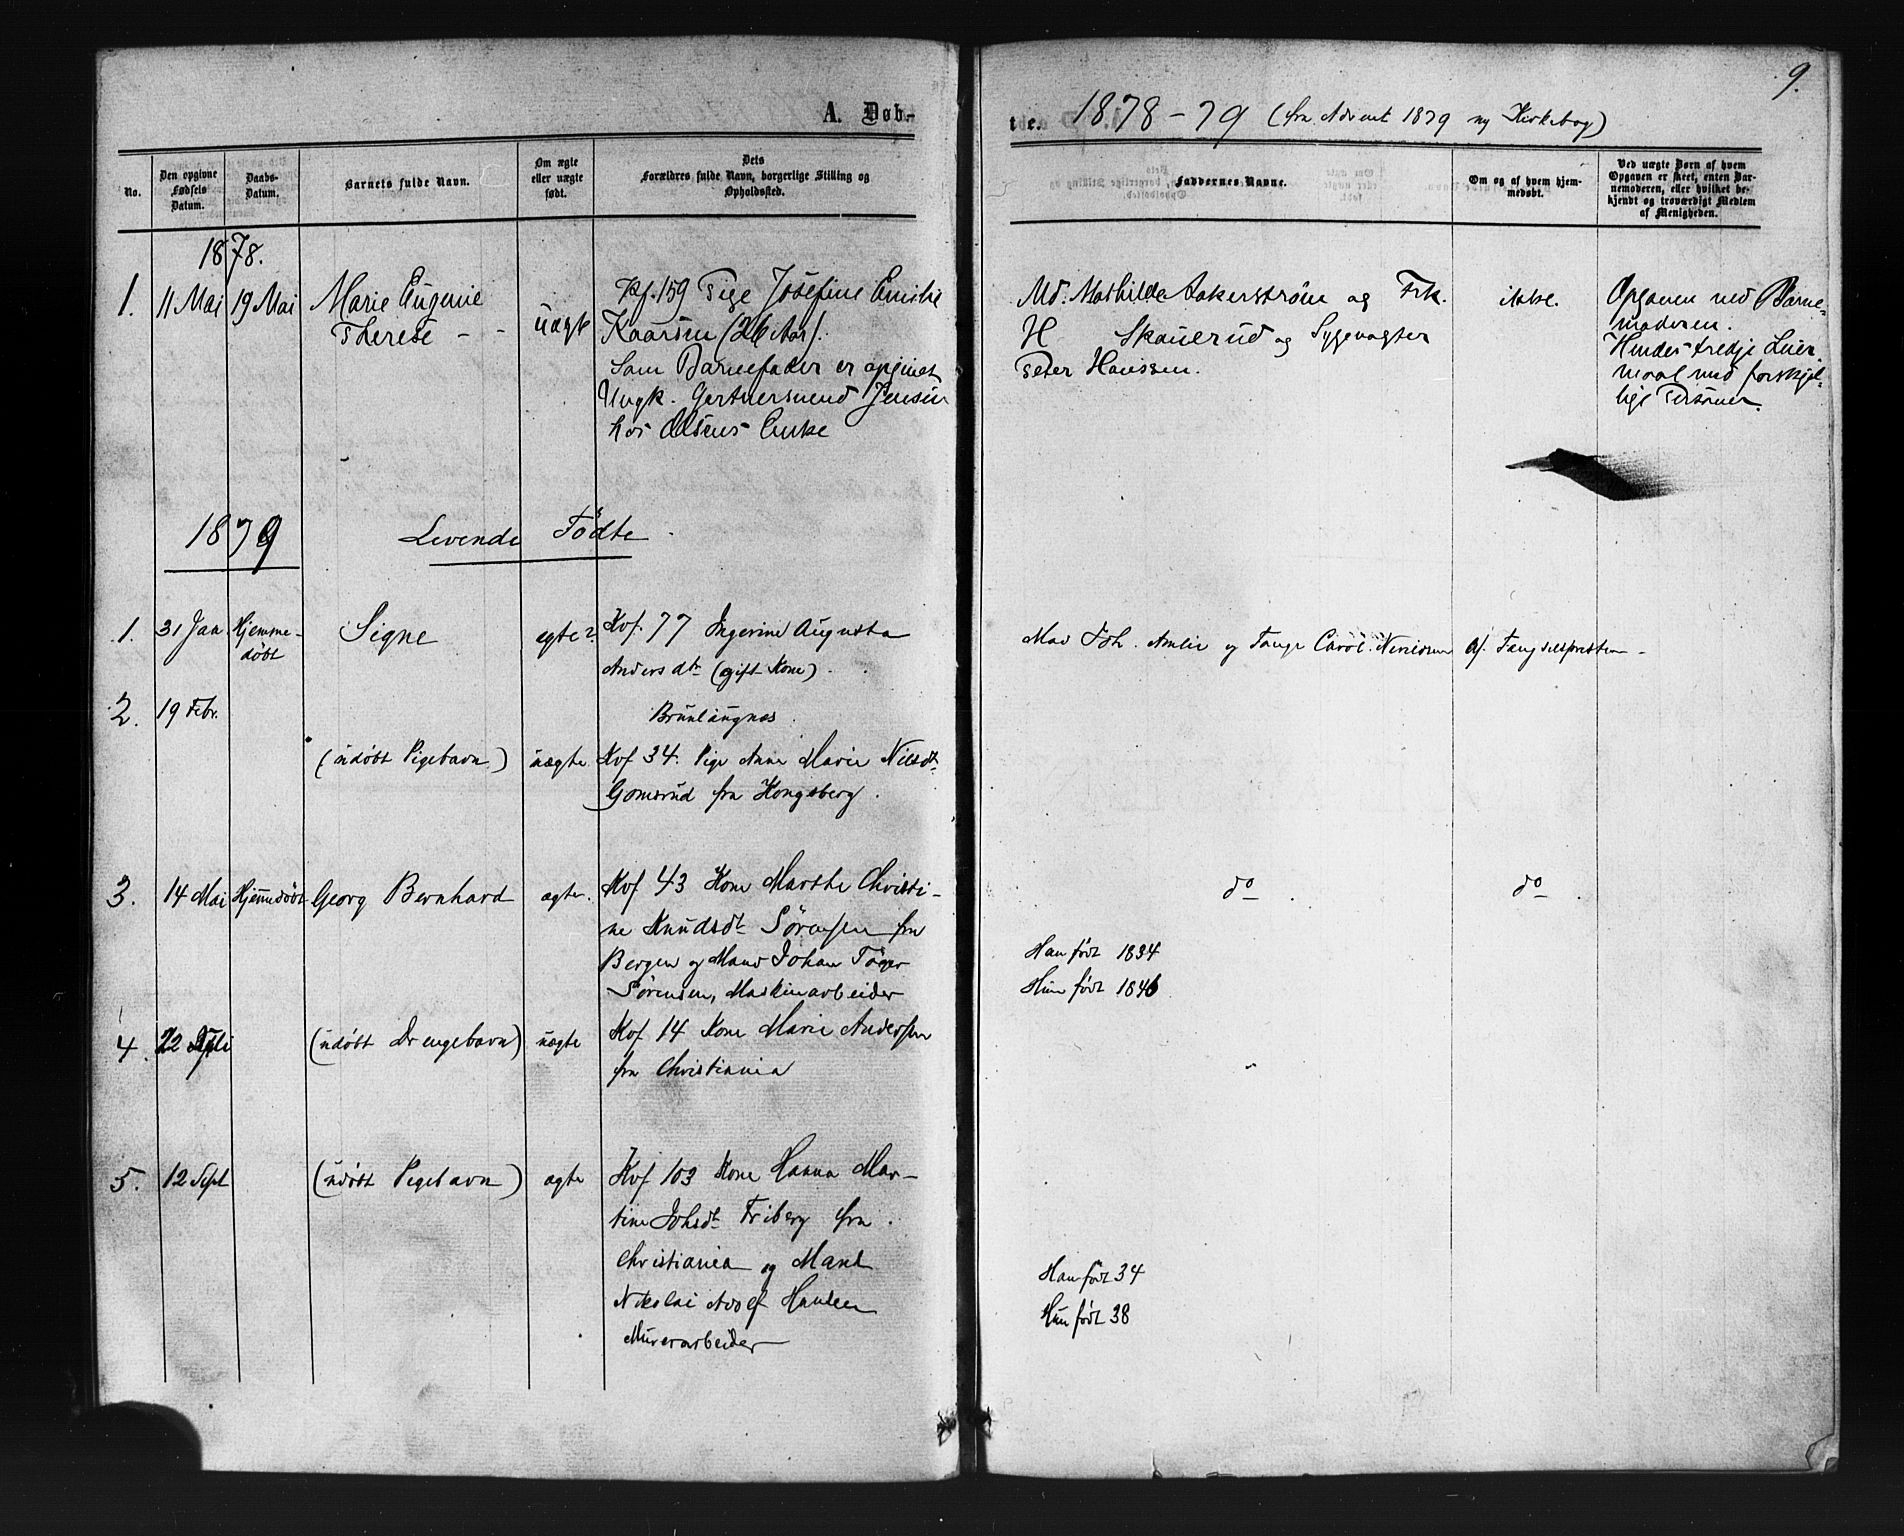 9.
A. Døb-
te. 1878-79 (fra Advent 1879 ny Kirkebog)
No.
Den opgivne Fødsels Datum.
Daabs-Datum.
Barnets fulde Navn.
Om ægte eller uægte født.
Dets Forældres fulde Navn, borgerlige Stilling og Opholdssted.
Faddernes Navne.
Om og af hvem hjem-medøbt.
Ved uægte Børn af hvem Opgaven er skeet, enten Bar-nemoderen, eller hvilket be-kjendt og troværdigt Medlem af Menigheden.
1878.
1. 11 Mai 19 Mai Marie Eugenie
Therese - -
uægte
Kf. 159 Pige Josefine Emilie
Kaarsen (26 Aar).
Som Barnefader er opgivet
Ungk. Gartnersvend Jensen
hos Olsens Enke
Md. Mathilde Aakerstrøm og Frk.
H Skauerud og Sygevogter
Peter Hanssen.
ikke.
Opgaven ved Barne-
moderen.
Hendes tredje Leier-
maal med forskjel-
lige Personer.
1879 Levende Fødte
1. 31 Jan Hjemme-
døbt
Signe
egte?
Kvf. 77 Ingerine Augusta
Andersdtr (gift Kone).
Mad Joh. Amlie og Fange Carol. Af Fængselspræsten
2. 19 Febr.
Brunlaugnæs.
(udøbt Pigebarn) uægte Kvf 34. Pige Anne Marie Nilsdt
Gomsrud fra Kongsberg.
3. 14 Mai Hjemmedøbt Georg Bernhard ægte. Kvf 43 Kone Marthe Christi-
ne Knudsdt Sørensen fra
Bergen og Mand Johan
Sørensen, Maskinarbeider
do
do
Han født 1834
Hun født 1846
4. 22 (udøbt Drengebarn) uægte Kvf 14 Kone Marie Andersen
fra Christiania
5. 12 Sept (udøbt Pigebarn) ægte Kvf 103 Kone Hanna Mar-
tine Johsdt Friberg fra
Christiania og Mand
Nikolai Adolf Hansen
Murerarbeider
Han født 34
Hun født 38